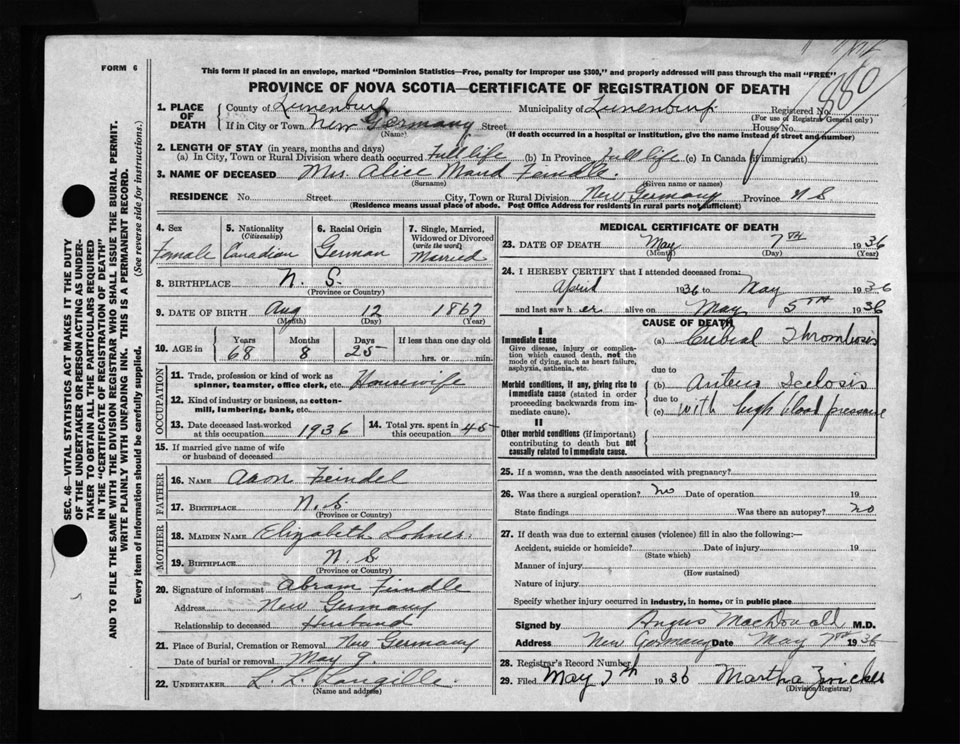 FORM 6
This form if placed in an envelope, marked "Dominion Statistics—Free, penalty for improper use $300," and properly addressed will pass through the mail "FREE"
PROVINCE OF NOVA SCOTIA—CERTIFICATE OF REGISTRATION OF DEATH
880
SEC. 46—VITAL STATISTICS ACT MAKES IT THE DUTY
OF THE UNDERTAKER OR PERSON ACTING AS UNDER-
TAKER TO OBTAIN ALL THE PARTICULARS REQUIRED
IN THE "CERTIFICATE OF REGISTRATION OF DEATH"
AND TO FILE THE SAME WITH THE DIVISION REGISTRAR WHO SHALL ISSUE THE BURIAL PERMIT.
WRITE PLAINLY WITH UNFADING INK. THIS IS A PERMANENT RECORD.
Every item of information should be carefully supplied. (See reverse side for instructions.)
1. PLACE OF DEATH County of Lunenburg Municipality of Lunenburg Registered No.
(For use of Registrar General only)
If in City or Town New Germany Street House No.
(Name) (If death occurred in a hospital or institution, give the name instead of street and number)
2. LENGTH OF STAY (in years, months and days)
(a) In City, Town or Rural Division where death occurred Full life (b) In Province Full life (c) In Canada (if immigrant)
3. NAME OF DECEASED Mrs. Alice Maud Feindle.
(Surname) (Given name or names)
RESIDENCE No. Street City, Town or Rural Division New Germany Province N S
(Residence means usual place of abode. Post Office Address for residents in rural parts not sufficient)
4. Sex Female
5. Nationality (Citizenship) Canadian
6. Racial Origin German
7. Single, Married, Widowed or Divorced (write the word) Married
8. BIRTHPLACE N. S.
(Province or Country)
9. DATE OF BIRTH Aug 12 1867
(Month) (Day) (Year)
10. AGE in Years 68 Months 8 Days 25 If less than one day old hrs. or min.
OCCUPATION
11. Trade, profession or kind of work as spinner, teamster, office clerk, etc. Housewife
12. Kind of industry or business, as cotton-mill, lumbering, bank, etc.
13. Date deceased last worked at this occupation 1936 14. Total yrs. spent in this occupation 45
15. If married give name of wife or husband of deceased
FATHER
16. NAME Aaon Feindel
17. BIRTHPLACE N. S
(Province or Country)
MOTHER
18. MAIDEN NAME Elizabeth Lohnes.
19. BIRTHPLACE N. S
(Province or Country)
20. Signature of informant Abram Findle
Address New Germany
Relationship to deceased Husband
21. Place of Burial, Cremation or Removal New Germany
Date of burial or removal May 9.
22. UNDERTAKER L. L. Langille.
(Name and address)
MEDICAL CERTIFICATE OF DEATH
23. DATE OF DEATH May 7TH 1936
(Month) (Day) (Year)
24. I HEREBY CERTIFY that I attended deceased from:
April 1936 to May 1936
and last saw her alive on May 5TH 1936
CAUSE OF DEATH
I
Immediate cause
Give disease, injury or complication which caused death, not the mode of dying, such as heart failure, asphyxia, asthenia, etc.
(a) Cribial Thrombosis
due to
Morbid conditions, if any, giving rise to immediate cause (stated in order proceeding backwards from immediate cause).
(b) Arterio Sclosis
due to
(c) with high blood pressure
II
Other morbid conditions (if important) contributing to death but not causally related to immediate cause.
25. If a woman, was the death associated with pregnancy?
26. Was there a surgical operation? no Date of operation 19
State findings Was there an autopsy? no
27. If death was due to external causes (violence) fill in also the following:—
Accident, suicide or homicide? Date of injury 19
(State which)
Manner of injury
(How sustained)
Nature of injury
Specify whether injury occurred in industry, in home, or in public place
Signed by Angus MacDonall M.D.
Address New Germany Date May 7TH 1936
28. Registrar's Record Number
29. Filed May 7th 1936 Martha Zwicker
(Division Registrar)